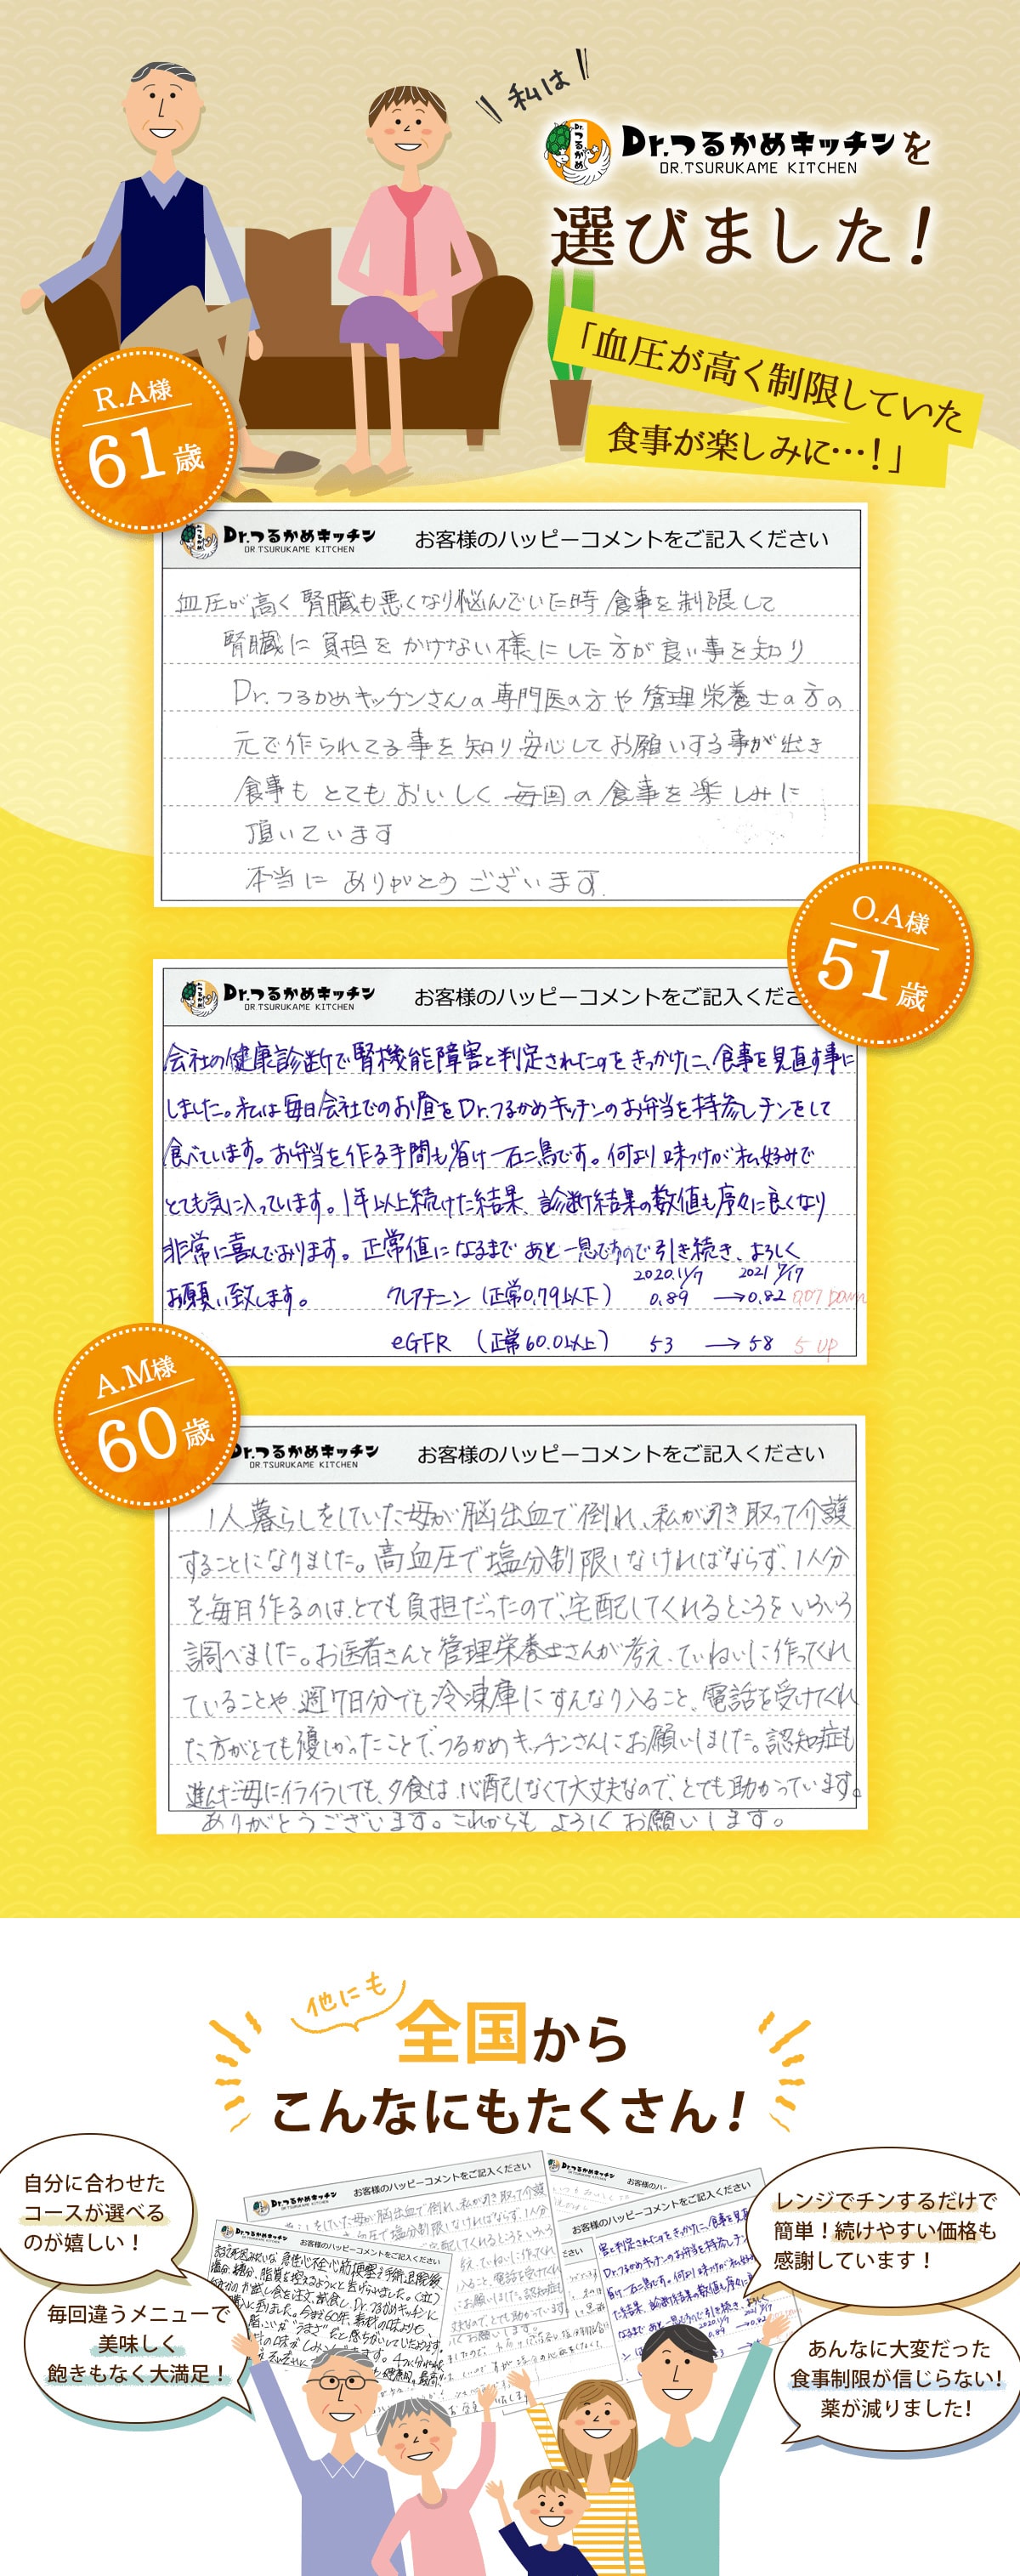 私は
Dr.つるかめキッチンを
DR.TSURUKAME KITCHEN
選びました！
「血圧が高く制限していた
食事が楽しみに…！」
R.A様
61歳
Dr.つるかめキッチン
DR.TSURUKAME KITCHEN
お客様のハッピーコメントをご記入ください
血圧が高く腎臓も悪くなり悩んでいた時食事を制限して
腎臓に負担をかけない様にした方が良い事を知り
Dr.つるかめキッチンさんの専門医の方や管理栄養士の方の
元で作られてる事を知り安心してお願いする事が出き
食事もとてもおいしく毎回の食事を楽しみに
頂いています
本当にありがとうございます.
O.A様
51歳
Dr.つるかめキッチン
DR.TSURUKAME KITCHEN
お客様のハッピーコメントをご記入くださ
会社の健康診断で腎機能障害と判定されたのをきっかけに、食事を見直す事に
しました。私は毎日会社でのお昼をDr.つるかめキッチンのお弁当を持参しチンをして
食べています。お弁当を作る手間も省け一石二鳥です。何より味つけが私好みで
とても気に入っています。1年以上続けた結果、診断結果の数値も序々に良くなり
非常に喜んでおります。正常値になるまであと一息ですので引き続き、よろしく
お願い致します。
2020.11/7 2021 7/17
クレアチニン（正常0.79以下） 0.89 →0.82 0.07 Down
eGFR （正常60.0以上） 53 → 58 5 UP
A.M様
60歳
Dr.つるかめキッチン
DR.TSURUKAME KITCHEN
お客様のハッピーコメントをご記入ください
1人暮らしをしていた母が脳出血で倒れ、私が引き取って介護
することになりました。高血圧で塩分制限しなければならず、1人分
を毎日作るのは、とても負担だったので、宅配してくれるところをいろいろ
調べました。お医者さんと管理栄養士さんが考え、ていねいに作ってくれ
ていることや、週7日分でも冷凍庫にすんなり入ること、電話を受けてくれ
た方がとても優しかったことで、つるかめキッチンさんにお願いしました。認知症も
進んだ母にイライラしても、夕食は心配しなくて大丈夫なので、とても助かっています。
ありがとうございます。これからもよろしくお願いします。
他にも
全国から
こんなにもたくさん！
自分に合わせた
コースが選べる
のが嬉しい！
毎回違うメニューで
美味しく
飽きもなく大満足！
レンジでチンするだけで
簡単！続けやすい価格も
感謝しています！
あんなに大変だった
食事制限が信じらない！
薬が減りました！
Dr.つるかめキッチン
お客様のハッピーコメントをご記入ください
Dr.つるかめキッチン
お客様のハッピーコメントをご記入ください
お客様のハッピーコメントをご記入ください